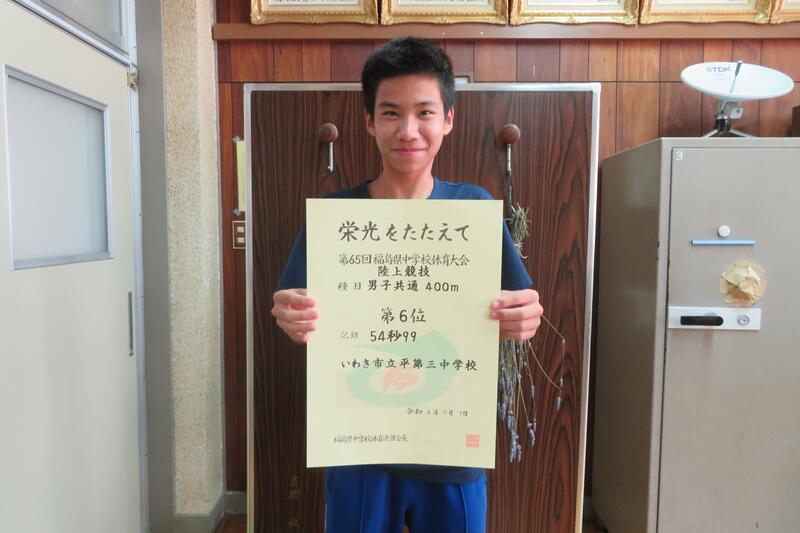 TDK
3
栄光をたたえて
第65回福島県中学校体育大会
陸上競技
種目 男子共通 400m
第6位
記録 54秒99
いわき市立平第三中学校
令和4年7月7日
福島県中学校体育連盟会長